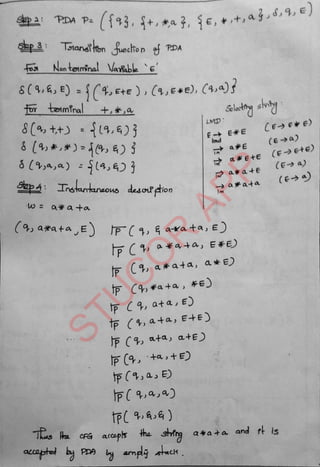 Step 2: PDA P = ({q}, {+, *, a}, {E, *, +, a}, δ, q, E)
Step 3: Transition function of PDA
for Nonterminal Variable 'E'
δ(q, ε, E) = {(q, E+E), (q, E*E), (q, a)}
for terminal +, *, a
δ(q, +, +) = {(q, ε)}
δ(q, *, *) = {(q, ε)}
δ(q, a, a) = {(q, ε)}
Selecting string:
LMD:
E ⇒ E*E (E → E*E)
lmd
⇒ a*E (E → a)
⇒ a*E+E (E → E+E)
⇒ a*a+E (E → a)
⇒ a*a+a (E → a)
Step 4: Instantaneous description
w = a*a+a
(q, a*a+a, E) ⊢p (q, ε a*a+a, E)
⊢p (q, a*a+a, E*E)
⊢p (q, a*a+a, a*E)
⊢p (q, *a+a, *E)
⊢p (q, a+a, E)
⊢p (q, a+a, E+E)
⊢p (q, a+a, a+E)
⊢p (q, +a, +E)
⊢p (q, a, E)
⊢p (q, a, a)
⊢p (q, ε, ε)
Thus the CFG accepts the string a*a+a and it is
accepted by PDA by empty stack.
STUCOR APP